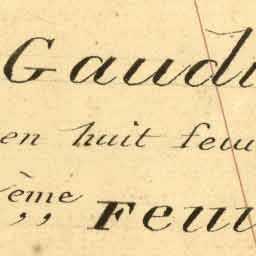 Gaudi
en huit feui
ème Feui